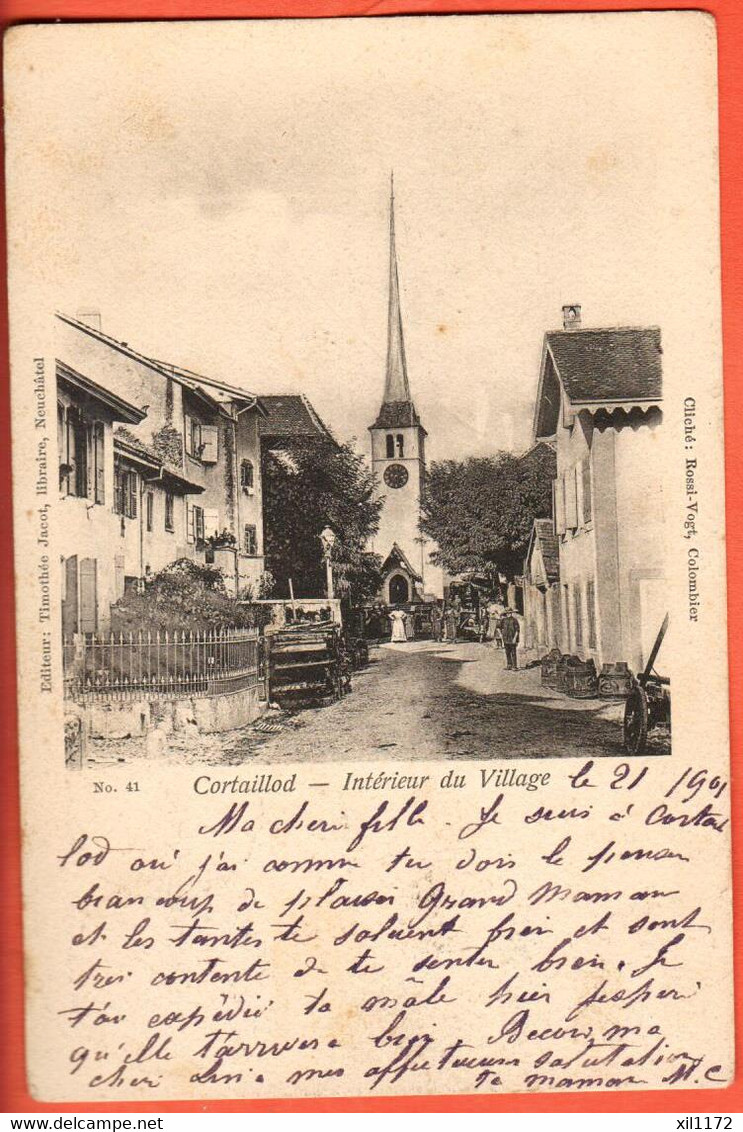 Editeur: Timothée Jacot, libraire, Neuchâtel
Cliché: Rossi-Vogt, Colombier
No. 41
Cortaillod — Intérieur du Village
le 21 / 1901
Ma cheri fille. Je suis à Cortail
lod ou j'ai comme tu dois le penser
beaucoup de plaisir Grand Maman
et les tantes te saluent bien et sont
tres contente de te sentir bien. Je
t'ai expédié ta mâle hier j'espère
qu'elle t'arrivera bien ma
cheri mes affectueuses salutation
ta maman M. C
xil1172